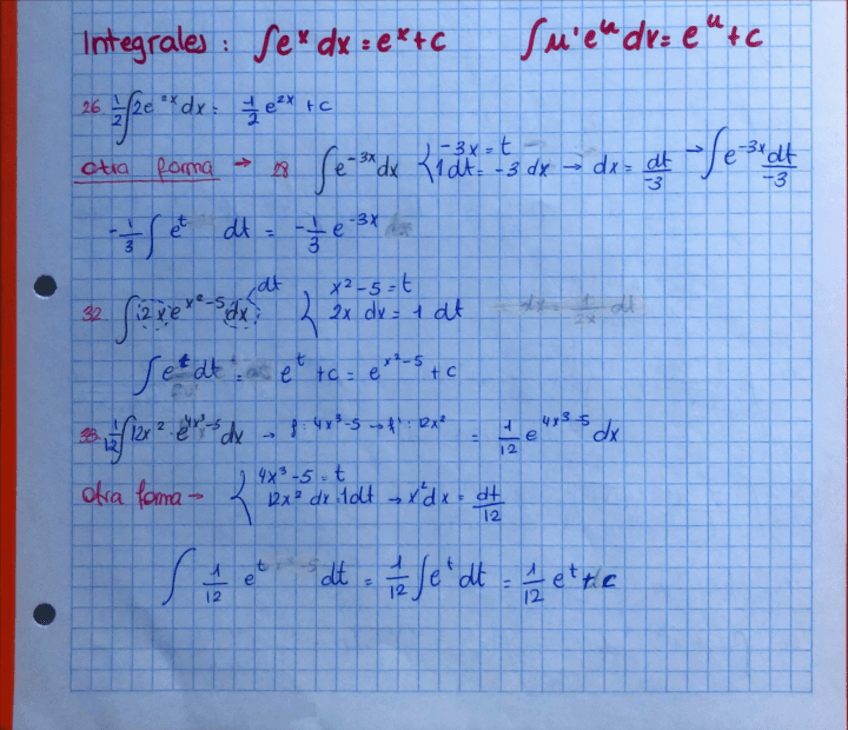 Integrales: ∫eˣ dx = eˣ + c ∫u'eᵘ dx = eᵘ + c
26 1/2 ∫2e²ˣ dx = 1/2 e²ˣ + c
Otra forma → 28 ∫e⁻³ˣ dx { -3x = t
1 dt = -3 dx → dx = dt/-3 → ∫e⁻³ˣ dt/-3
-1/3 ∫ eᵗ dt = -1/3 e⁻³ˣ
32 ∫2x e^(x²-5) dx dt { x² - 5 = t
2x dx = 1 dt
∫eᵗ dt = eᵗ + c = e^(x²-5) + c
1/12 ∫12x² · e^(4x³-5) dx → f: 4x³-5 → f': 12x² = 1/12 e^(4x³-5) dx
Otra forma → { 4x³ - 5 = t
12x² dx = 1dt → x² dx = dt/12
∫ 1/12 eᵗ dt = 1/12 ∫eᵗ dt = 1/12 eᵗ + c